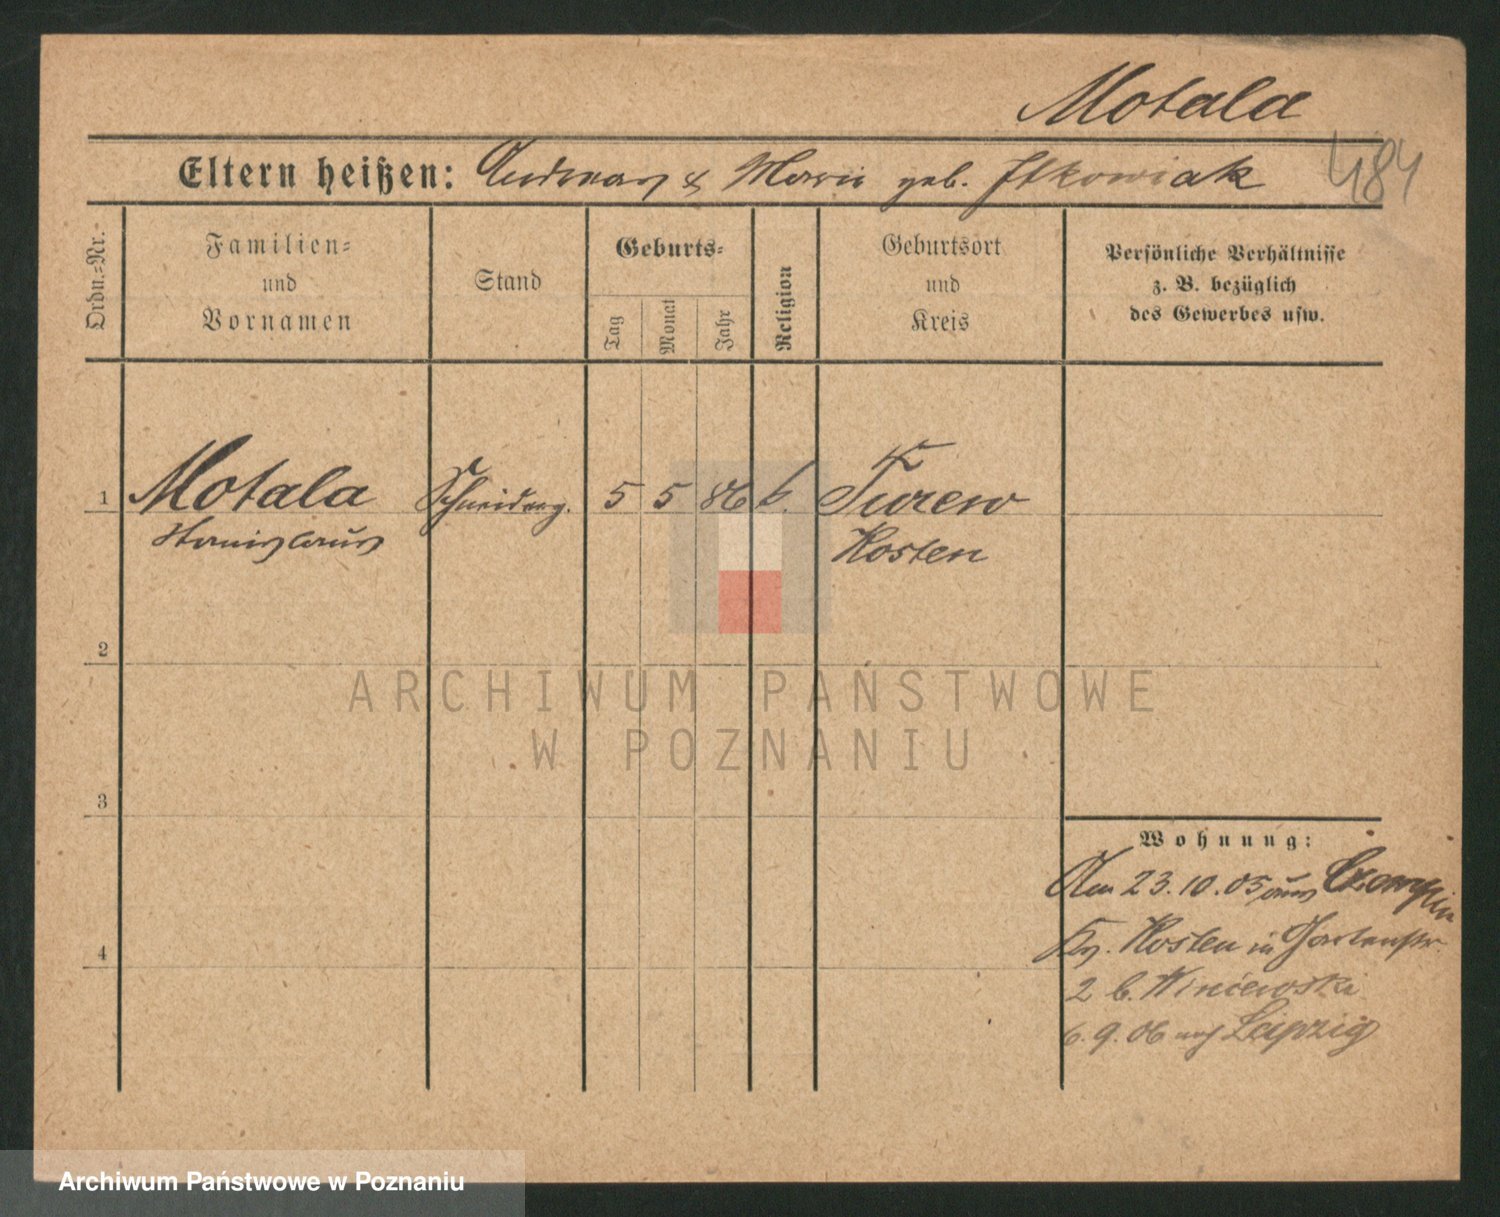 Motala
Eltern heißen: Andreas & Marie geb. Itkowiak
484
Ordn.=Nr.
Familien=
und
Vornamen
Stand
Geburts=
Tag
Monat
Jahr
Religion
Geburtsort
und
Kreis
Persönliche Verhältnisse
z. B. bezüglich
des Gewerbes usw.
1 Motala Schneiderg. 5 5 86 k. Turew
Stanislaus
K
Kosten
2
3
4
Wohnung:
Am 23.10.05 aus
Kr. Kosten in Gartenstr.
2 b. Winiewski
6.9.06 nach Leipzig
ARCHIWUM PAŃSTWOWE
W POZNANIU
Archiwum Państwowe w Poznaniu